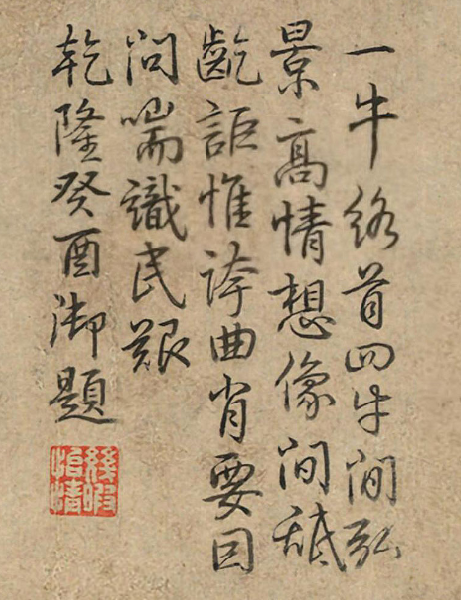 一牛絡首四牛閒弘
景高情想像間舐
齕詎惟誇曲肖要因
問喘識民艱
乾隆癸酉御題
幾暇怡情